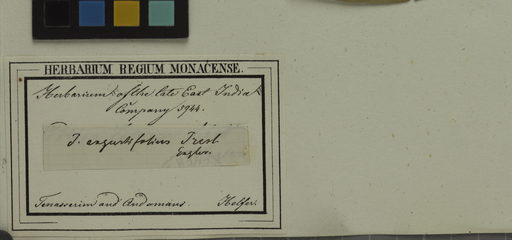 HERBARIUM REGIUM MONACENSE.
Herbarium of the late East India
Company 3944.
P. angustifolius Tresl
Engler.
Tenasserim and Andamans. Helfer.